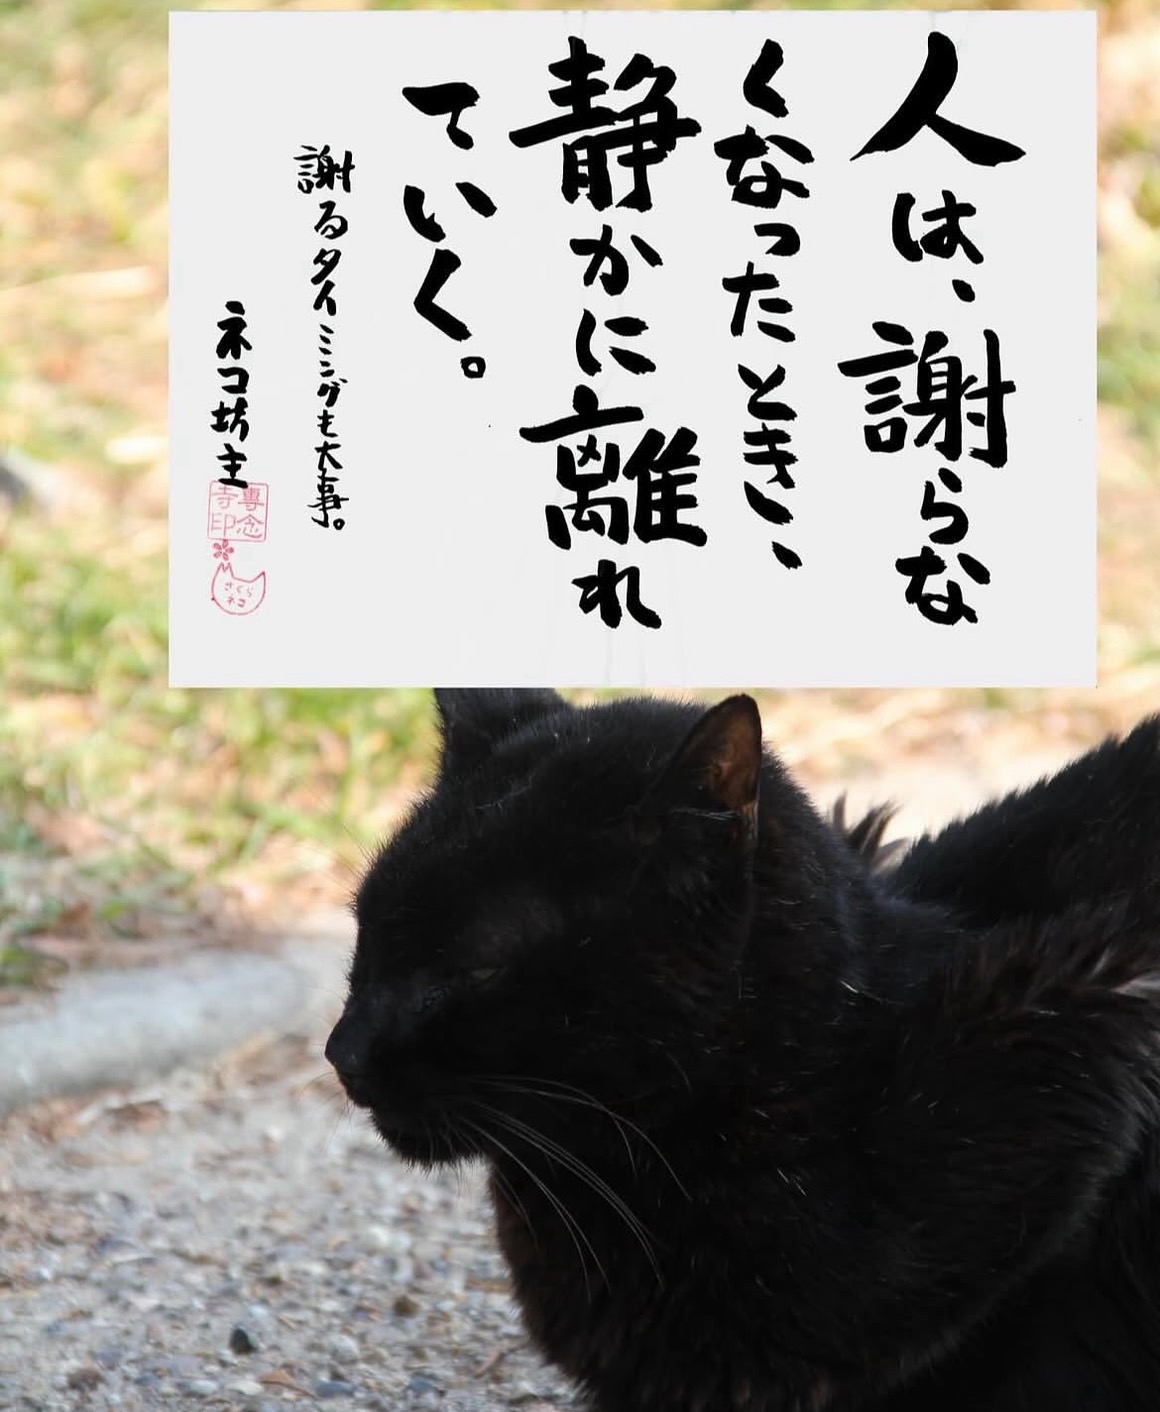 人は、謝らな
くなったとき、
静かに離れ
ていく。
謝るタイミングも大事。
ネコ坊主
專念
寺印
さくら
ネコ